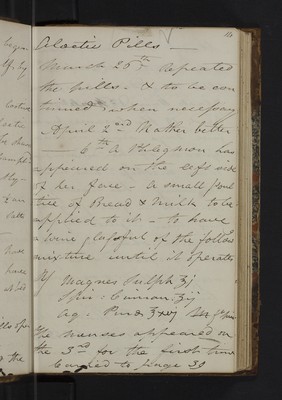 Aloetic Pills —
March 28th Repeated
the pills. & to be con
tinued when necessary
April 2nd Rather better
— 6th A Phlegmon has
appeared on the left side
of her face — a small poul
tice of Bread & milk to be
applied to it — to have
a wine glassful of the follow
mixture until it operates
Magnes Sulph ʒj
Spir: Cinnam: ʒij
Aq. Purae
The menses appeared on
the 3rd for the first time
Carried to page 39